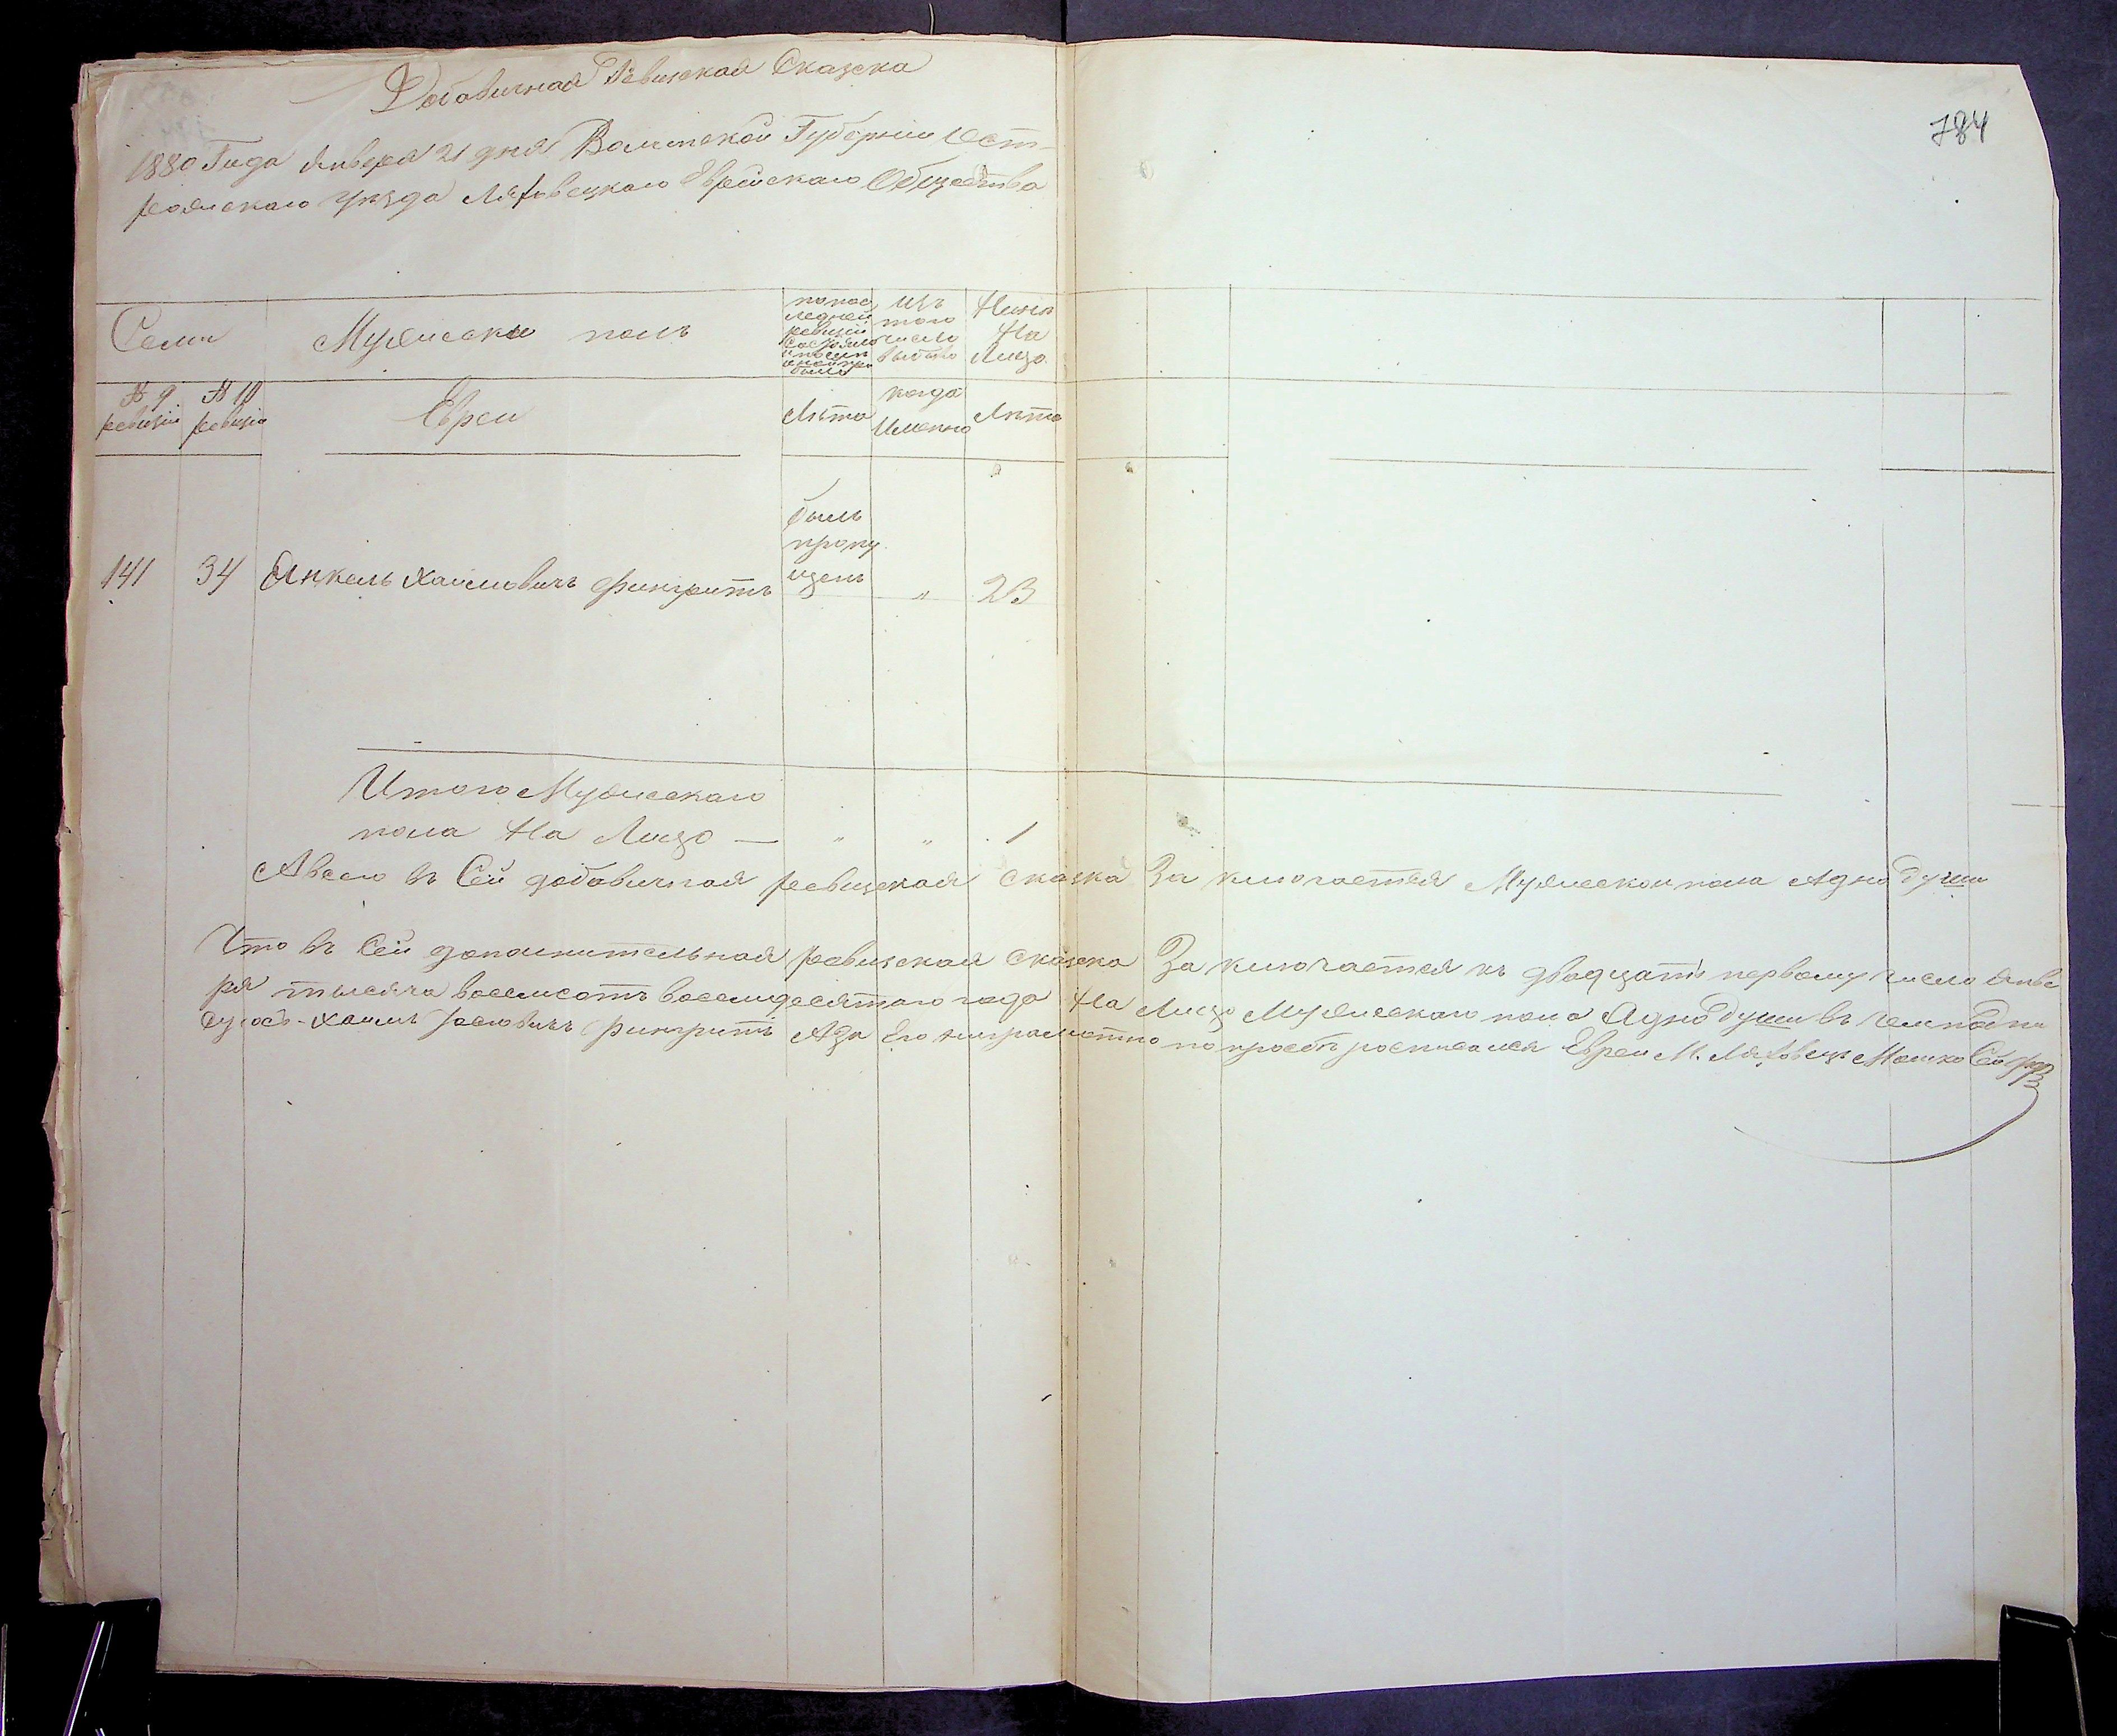 784
Добавичная Ревизская Сказска
1880 Года Января 21 дня Волынской Губернии Ост-
рожскаго уезда Ляховецкаго Еврейскаго Общества
Семи
Мужиски полъ
попос
ледней
ревизіи
состояло
изъ
того
число
выбыло
Нинѣ
На
Лицо
№ 9
ревизіи
№ 10
ревизіи
Евреи
Лѣта
когда
Именно
Лѣта
141 34 Янкель Хаимовичъ Фингрить
былъ
пропу
щенъ
" 23
Итого Мужескаго
пола На Лицо — " " 1
Авсего въ Сей добавичная ревизская сказка За ключается Мужеской пола Адно души
Что въ Сей дополнительная ревизская сказска За ключается къ двадцать первому число Янва
ря тысяча восемсотъ восемидесятаго года На Лицо Мужескаго пола Адно души въ чем подпи
суюсь - Хаимъ Фингрить Аза Его ниграматно по просбѣ росписался Еврей М. Ляховецъ Мошко